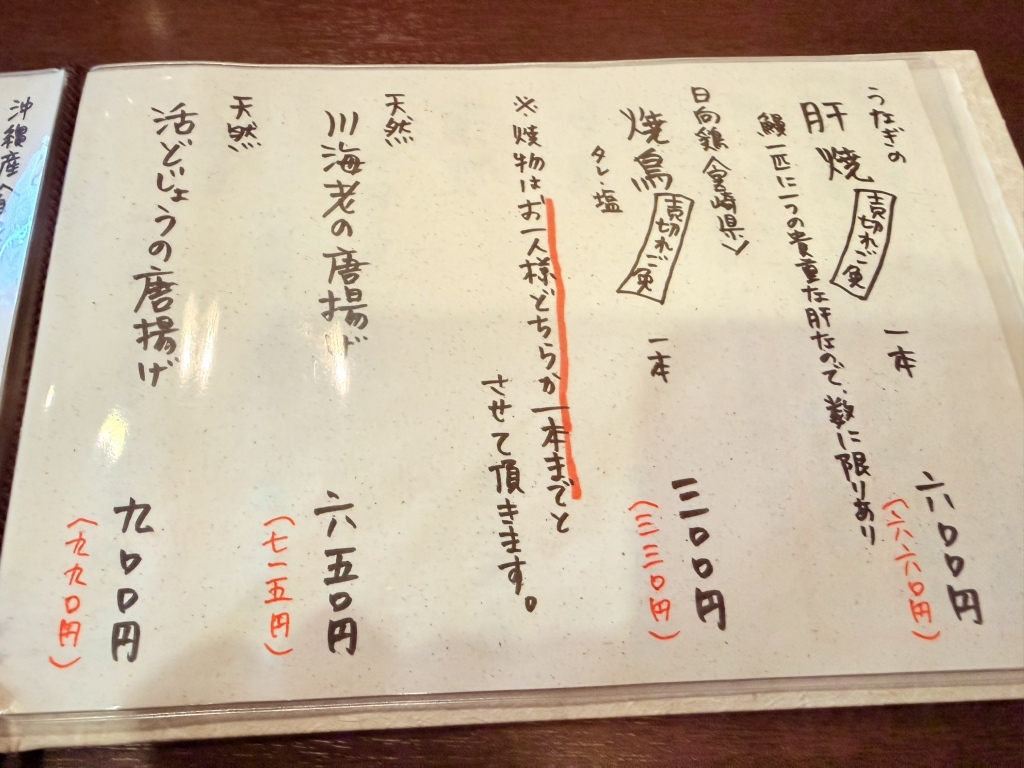 うなぎの
肝焼
売切れご免
一本
六〇〇円
(六六〇円)
鰻一匹に一つの貴重な肝なので、数に限りあり
日向鶏(宮崎県)
焼鳥
売切れご免
一本
三〇〇円
(三三〇円)
タレ・塩
※焼物はお一人様どちらか一本までと
させて頂きます。
天然
川海老の唐揚げ
六五〇円
(七一五円)
天然
活どじょうの唐揚げ
九〇〇円
(九九〇円)
沖縄産